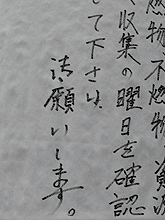 燃物不燃物
収集の曜日を確認
して下さい
お願いします。